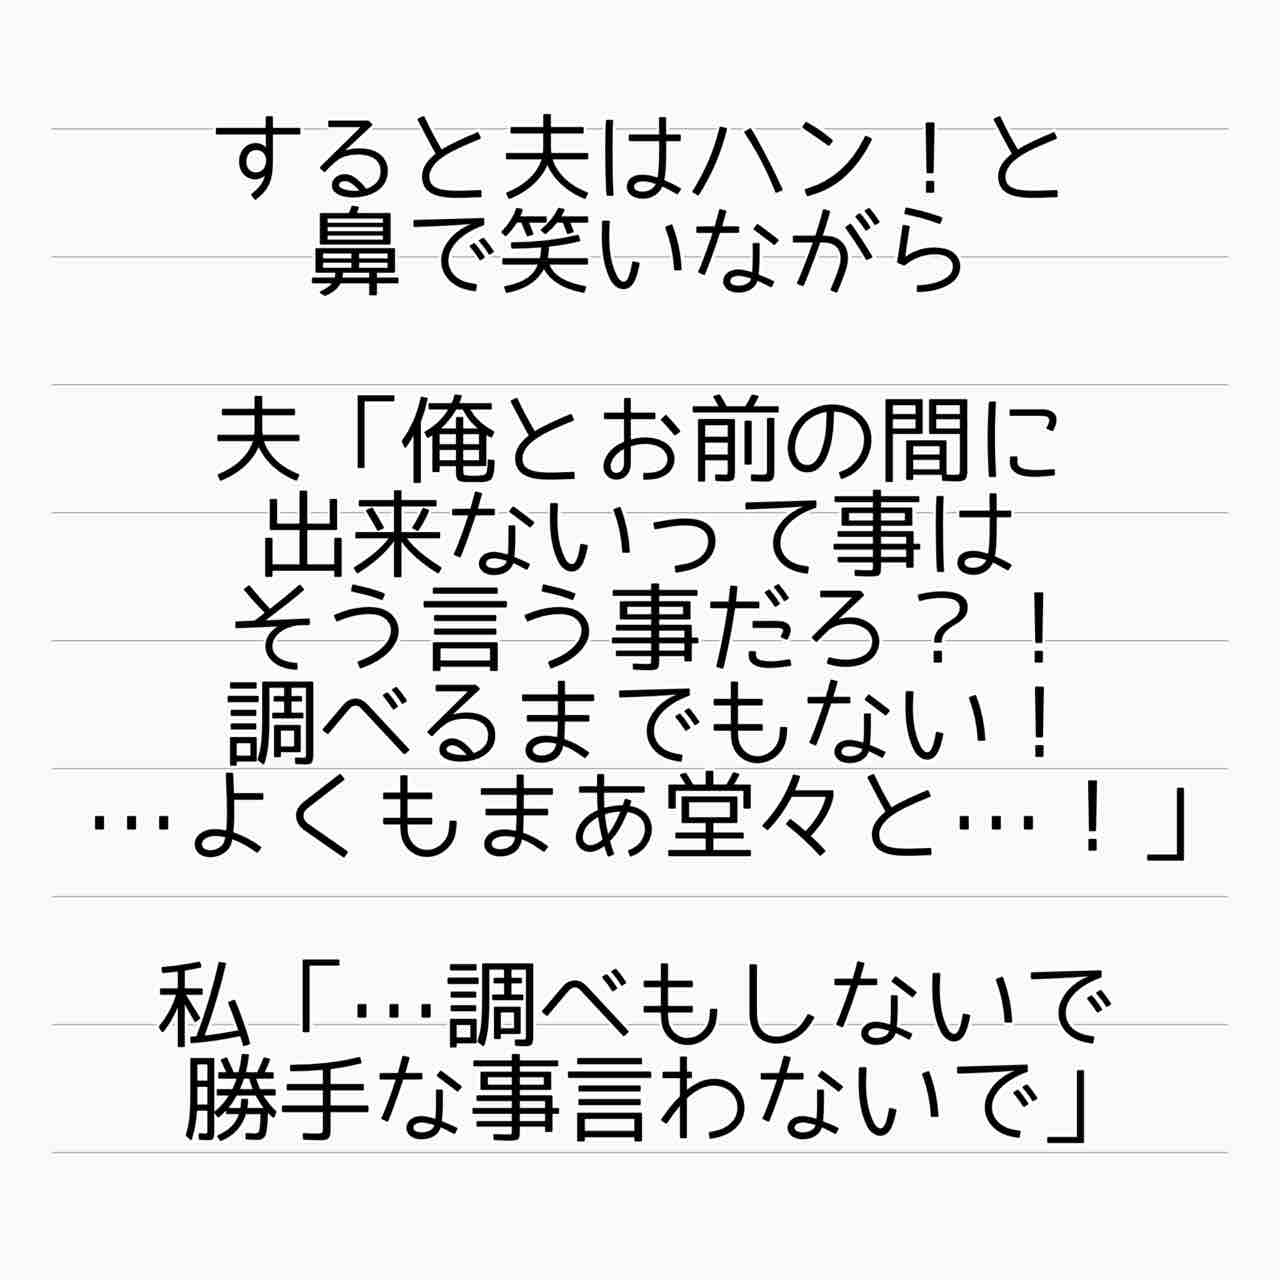 すると夫はハン！と
鼻で笑いながら
夫「俺とお前の間に
出来ないって事は
そう言う事だろ？！
調べるまでもない！
…よくもまあ堂々と…！」
私「…調べもしないで
勝手な事言わないで」